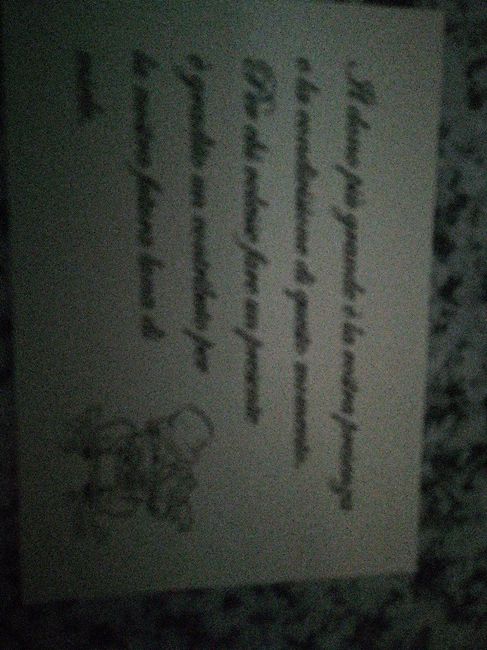 Il dono più grande è la vostra presenza
e la condivisione di questo momento.
Per chi volesse fare un presente
è gradito un contributo per
la nostra futura luna di
miele.